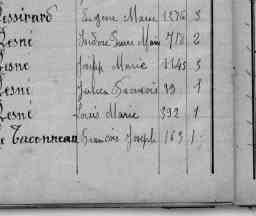 essirard Eugène Marie 1276 3
Lesné Isidore Pierre Marie 718 2
Lesné Joseph Marie 1145 3
Lesné Julien François 99 1
Lesné Louis Marie 392 1
Le Taconneau François Joseph 163 1